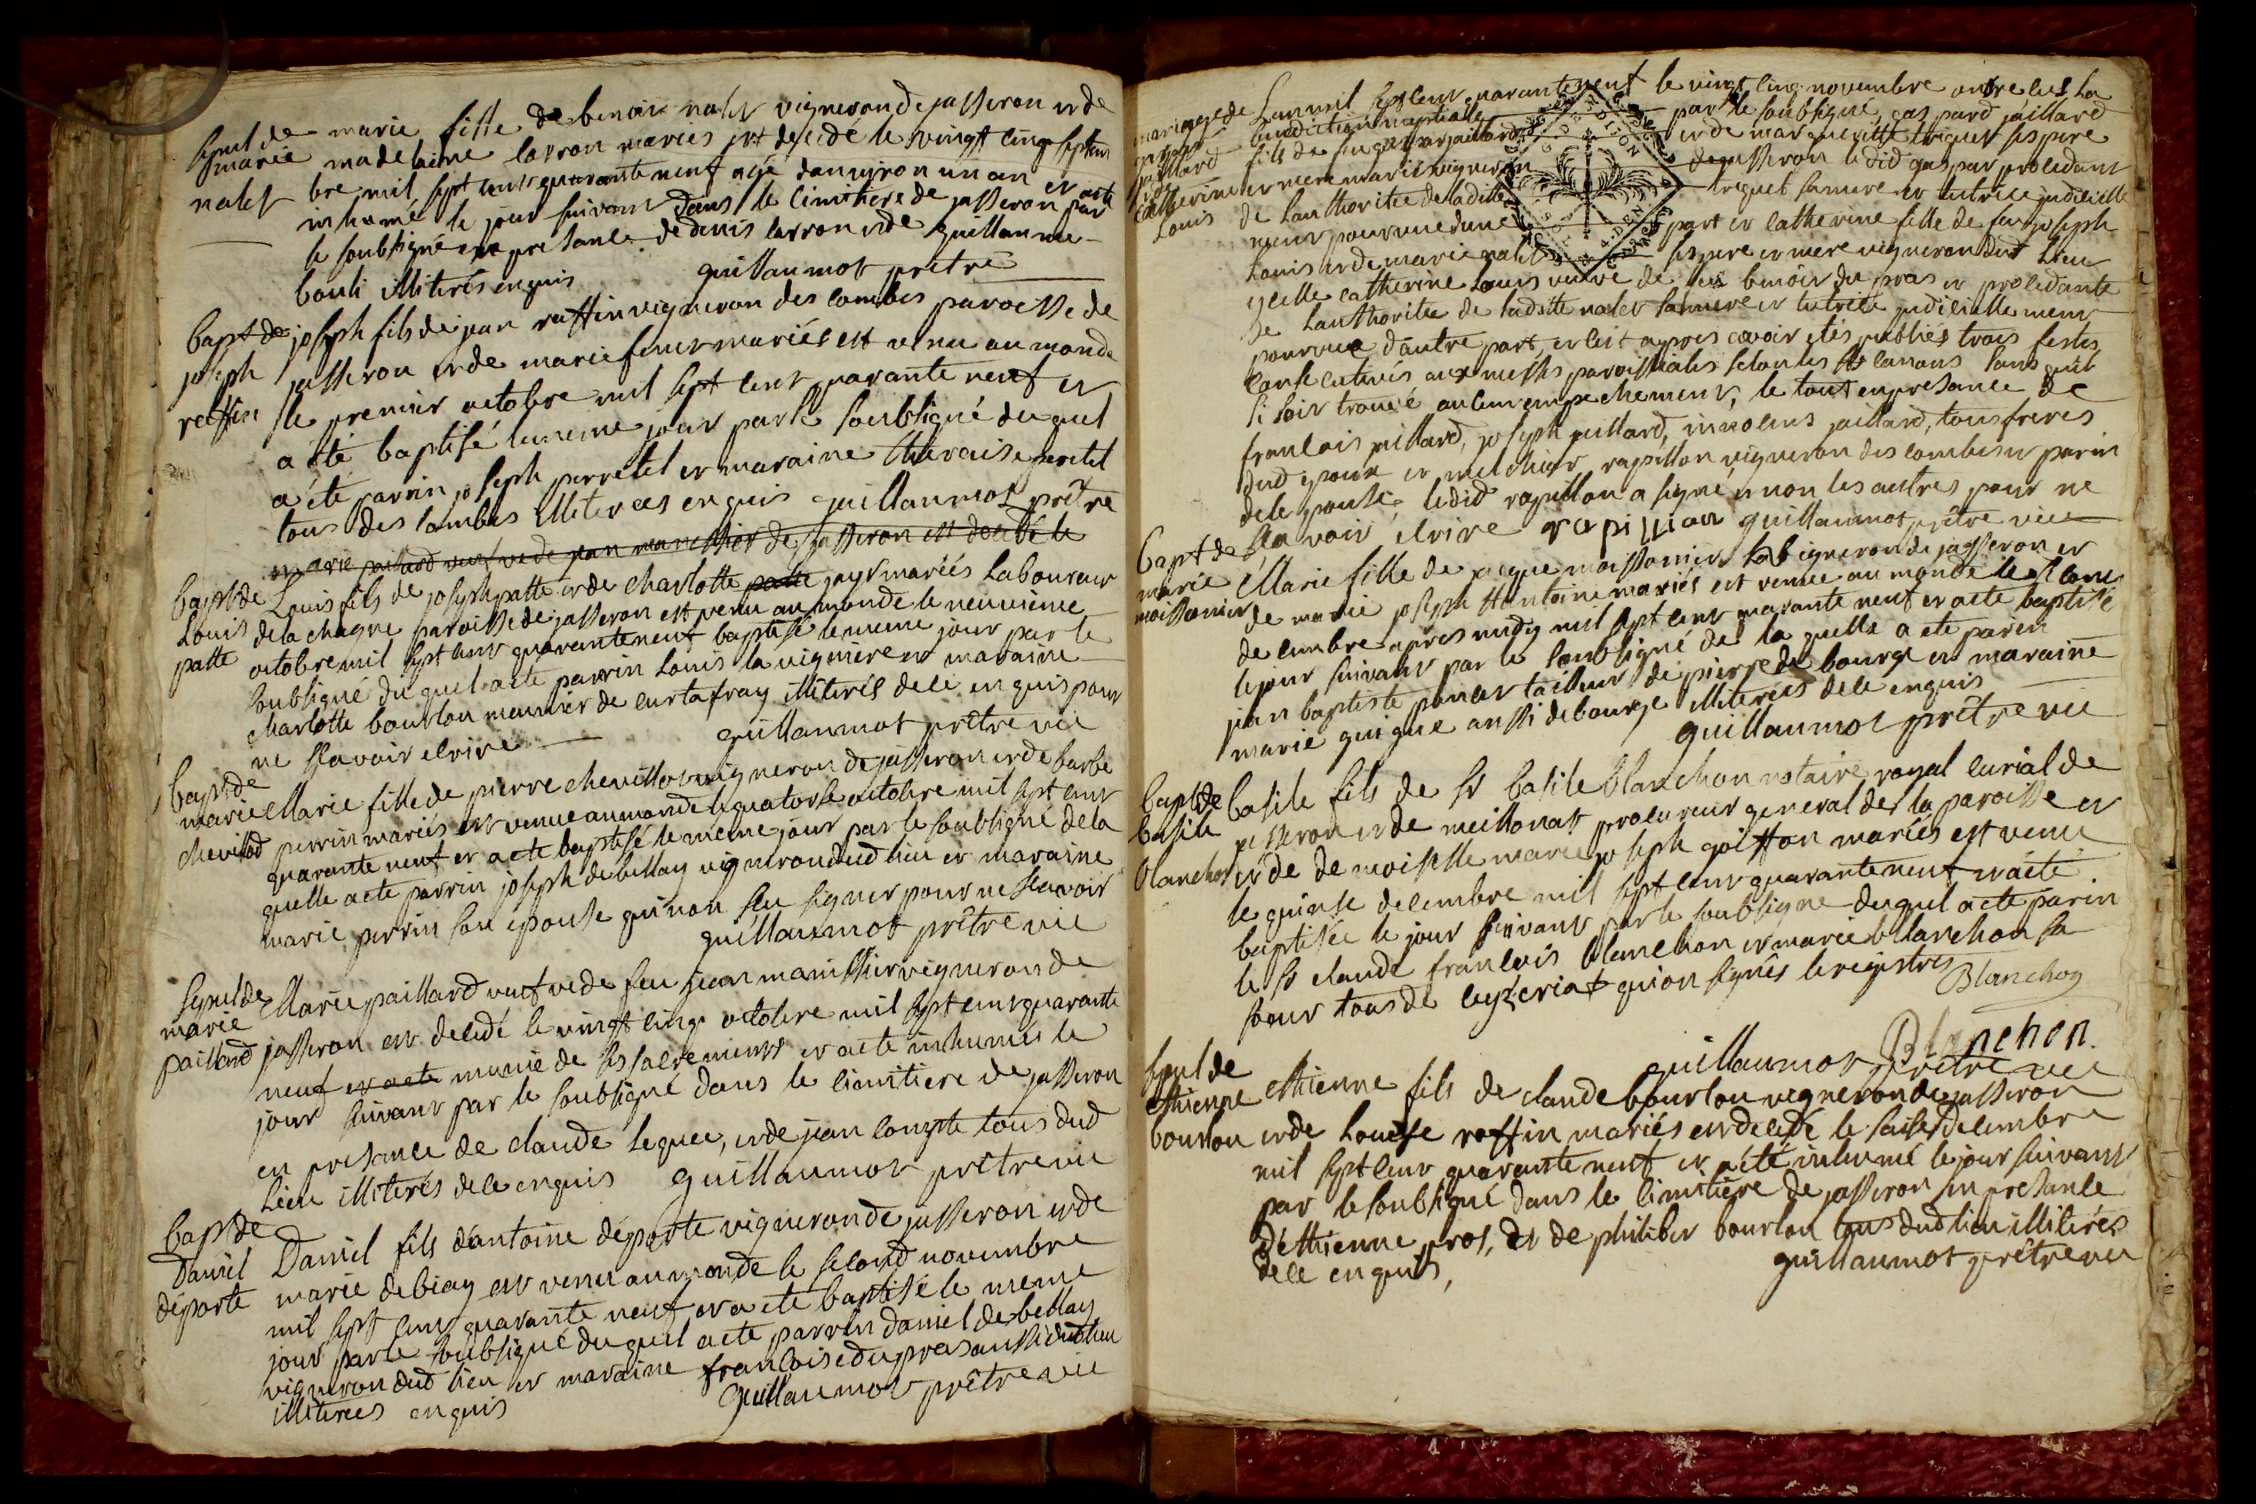 Sepul de marie nalet
marie fille de benoit nalet vigneron de jasseron et de
madelaine lavron mariés est decedé le vingt cinq septem
bre mil sept cent quarante neuf agé denvyron un an et acté
inhumé le jour suivant dans le cimithere de jasseron par
le soubsigné en presance de denis lavron et de guillaume
bouli illiterés enquis guillaumot prêtre
Bapt de joseph raffin
joseph fils de jean raffin vigneron des combes paroisse de
jasseron et de marie mariés est venu au monde
le premier octobre mil sept cent quarante neuf et
a été baptisé le meme jour par le soubsigné du quel
a été parrin joseph perretel et maraine theraise peretel
tous des combes illiterées enquis guillaumot prêtre
marie paillard veufve de jean de jasseron est decedé le
Bapt de Louis patte
Louis fils de joseph patte et de charlotte patte jayr mariés laboureur
de la chagne paroisse de jasseron est venu au monde le neuvième
octobre mil sept cent quarante neuf baptisé le meme jour par le
soubsigné du quel acté parrin Louis la vigniere et maraine
charlotte bourlon meunier de curtafray illiterés de ce enquis pour
ne sçavoir ecrire guillaumot prêtre vic
Bapt de marie chevillod
Marie fille de pierre chevillot vigneron de jasseron et de barbe
perrin mariés est venue au monde le quatorse octobre mil sept cent
quarante neuf et acté baptisé le meme jour par le soubsigné de la
quelle acté parrin joseph debellay vigneron dud lieu et maraine
marie perrin son epouse qui non sçu signer pour ne sçavoir
guillaumot prêtre vic
Sepul de marie paillard
Marie paillard veufve de feu jean vigneron de
jasseron est decedé le vingt cinq octobre mil sept cent quarante
neuf et acté munie de ses sacrements et acté inhumés le
jour suivant par le soubsigné dans le cimitiere de jasseron
en presance de claude lequeu, et de jean compte tous dud
lieu illiterés de ce enquis guillaumot prêtre vic
Bapt de Daniel déporte
Daniel fils d'antoine déporte vigneron de jasseron et de
marie debiay est venu au monde le second novembre
mil sept cent quarante neuf et a eté baptisé le meme
jour par le soubsigné du quel acté parrin daniel debellay
vigneron dud lieu et maraine françoise dupras aussi dud lieu
illiterées enquis guillaumot prêtre vic
mariage de gaspard jaillard et de Catherine Louis
Lan mil sept cent quarante neuf le vingt cinq novembre ont reçus la
benediction nuptialle par le soubsigné, gaspard jaillard
fils de feu gaspar jaillard et de margueritte triquet ses pere
et mere mariés vigneron de jasseron ledid gaspar procedant
de l'authoritée de ladite triquet sa mere et tutrice judicielle
ment pourvue dune part et catherine fille de feu joseph
Louis et de marie nalet ses pere et mere vigneron dud lieu
ycelle catherine Louis veuve de feu benoit du pras et procedante
de l'authoritée de ladite nalet sa mere et tutrice judicielle ment
pourvue d'autre part, et ce apres avoir étés publiés trois festes
consecutives aux messes paroissiales selon les sts canons sans quil
si soit trouvé aucun empechement, le tout en presance de
françois jaillard, joseph jaillard, jaillard, tous freres
dud epoux et melchior rapillion vigneron des combes et parin
de l'epouse ledid rapillon a signé et non les autres pour ne
sçavoir ecrire rapillian guillaumot prêtre vic
Bapt de marie moissonier
Marie fille de jacque moissonier vigneron de jasseron et
de marie joseph Hantoine mariés est venue au monde le
decembre apres midy mil sept cent quarante neuf et acté baptisé
le jour suivant par le soubsigné de la quelle a eté parin
jean baptiste tailleur de pierre de bourge et maraine
marie guigue aussi de bourge illiterées de ce enquis
guillaumot prêtre vic
Bapt de basile blanchon
basile fils de sr basile blanchon notaire royal curial de
jasseron et de meillonat procureur general de la paroisse et
et de demoiselle marie joseph goiffon mariés est venu
le quinse decembre mil sept cent quarante neuf et acté
baptisée le jour suivant par le soubsigné duquel acté parin
le sr claude françois blanchon et marie blanchon sa
soeur tous de ceyzeriat qui on signés le registres
Blanchon
Blanchon.
guillaumot prêtre vic
Sepul de ethienne bourlon
ethienne fils de claude bourlon vigneron de jasseron
et de Louise raffin mariés est decedé le saise decembre
mil sept cent quarante neuf et a été inhumé le jour suivant
par le soubsigné dans le cimitière de jasseron en presance
d'ethienne pros, et de philiber bourlon tous dud lieu illiterés
de ce enquis, guillaumot prêtre vic